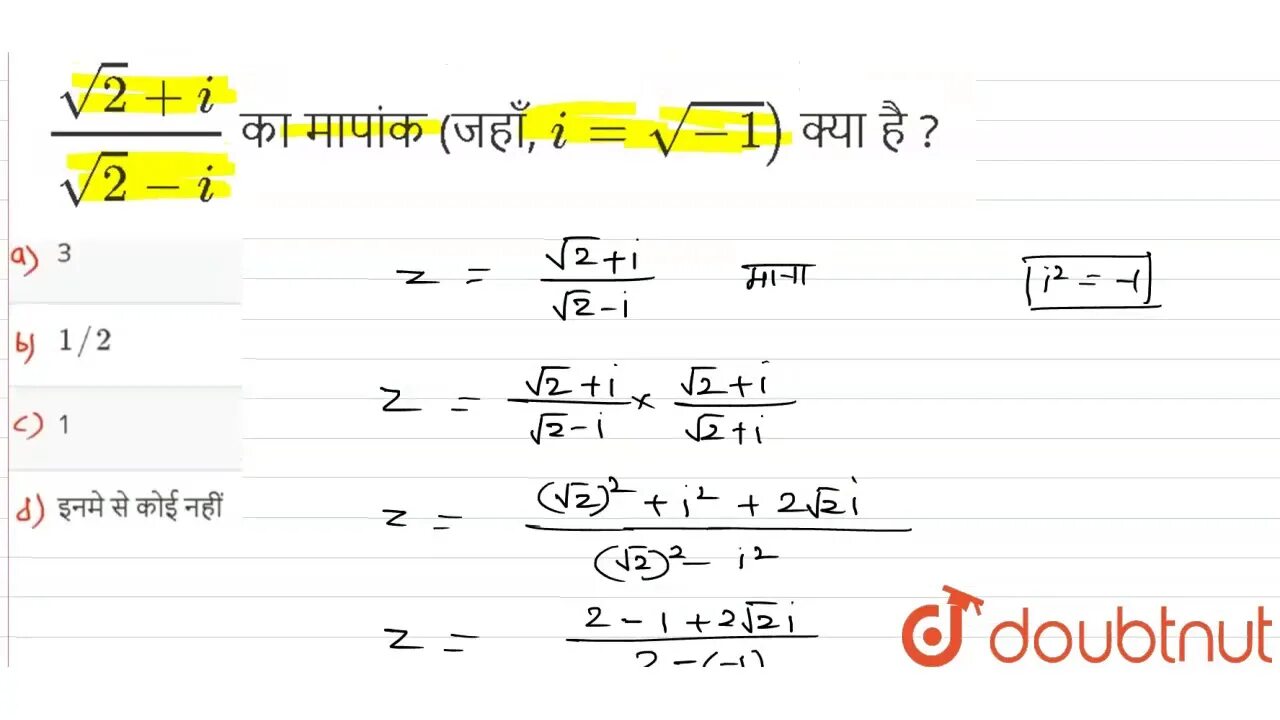 (√2 + i)/(√2 − i) का मापांक (जहाँ, i = √−1) क्या है ?
a) 3
b) 1/2
c) 1
d) इनमे से कोई नहीं
z = (√2+i)/(√2-i) माना
i² = -1
z = (√2+i)/(√2-i) × (√2+i)/(√2+i)
z = ((√2)² + i² + 2√2i)/((√2)² - i²)
z = (2-1+2√2i)/(2-(-1))
doubtnut